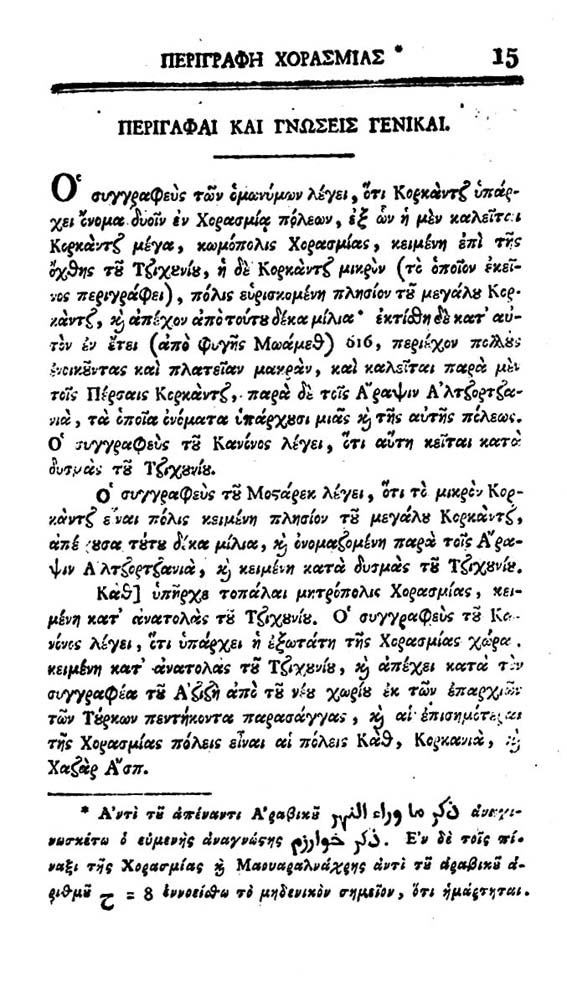 ΠΕΡΙΓΡΑΦΗ ΧΟΡΑΣΜΙΑΣ * 15
ΠΕΡΙΓΑΦΑΙ ΚΑΙ ΓΝΩΣΕΙΣ ΓΕΝΙΚΑΙ.
Ο῾ συγγραφεὺς τῶν ὁμωνύμων λέγει, ὅτι Κορκάντζ ὑπάρ-
χει ὄνομα δυοῖν ἐν Χορασμίᾳ πόλεων, ἐξ ὧν ἡ μὲν καλεῖται
Κορκάντζ μέγα, κωμόπολις Χορασμίας, κειμένη ἐπὶ τῆς
ὄχθης τȣ͂ Τζιχȣνίȣ, ἡ δὲ Κορκάντζ μικρὸν (τὸ ὁποῖον ἐκεῖ-
νος περιγράφει), πόλις εὑρισκομένη πλησίον τȣ͂ μεγάλȣ Κορ-
κάντζ, ϗ̀ ἀπέχον ἀπὸ τούτȣ δέκα μίλια· ἐκτίσθη δὲ κατ' αὐ-
τὸν ἐν ἔτει (ἀπὸ φυγῆς Μωάμεθ) 616, περιέχον πολλȣ̀ς
ἐνοικȣ͂ντας καὶ πλατεῖαν μακρὰν, καὶ καλεῖται παρὰ μὲν
τοῖς Πέρσαις Κορκάντζ, παρὰ δὲ τοῖς Α῎ραψιν Α᾿λτζορτζα-
νιὰ, τὰ ὁποῖα ὀνόματα ὑπάρχȣσι μιᾶς ϗ̀ τῆς αὐτῆς πόλεως.
Ο῾ συγγραφεὺς τȣ͂ Κανόνος λέγει, ὅτι αὕτη κεῖται κατὰ
δυσμὰς τȣ͂ Τζιχȣνίȣ.
Ο῾ συγγραφεὺς τȣ͂ Μοϛάρεκ λέγει, ὅτι τὸ μικρὸν Κορ-
κάντζ εἶναι πόλις κειμένη πλησίον τȣ͂ μεγάλȣ Κορκάντζ,
ἀπέχȣσα τύτȣ δέκα μίλια, ϗ̀ ὀνομαζομένη παρὰ τοῖς Α῎ρα-
ψιν Α᾿λτζορτζανιὰ, ϗ̀ κειμένη κατὰ δυσμὰς τȣ͂ Τζιχȣνίȣ.
Κὰθ] ὑπῆρχε τοπάλαι μητρόπολις Χορασμίας, κει-
μένη κατ' ἀνατολὰς τȣ͂ Τζιχȣνίȣ. Ο῾ συγγραφεὺς τȣ͂ Κα-
νόνος λέγει, ὅτι ὑπάρχει ἡ ἐξωτάτη τῆς Χορασμίας χώρα,
κειμένη κατ' ἀνατολὰς τȣ͂ Τζιχȣνίȣ, ϗ̀ ἀπέχει κατὰ τὸν
συγγραφέα τȣ͂ Α᾿ζιζὴ ἀπὸ τȣ͂ νέȣ χωρίȣ ἐκ τῶν ἐπαρχιῶν
τῶν Τύρκων πεντήκοντα παρασάγγας, ϗ̀ αἱ ἐπισημότεραι
τῆς Χορασμίας πόλεις εἶναι αἱ πόλεις Κὰθ, Κορκανιὰ, ϗ̀
Χαζὰρ Α῎σπ.
* Α᾿ντὶ τȣ͂ ἀπέναντι Α᾿ραβικȣ͂ ذكر ما وراء النهر ἀνεγι-
νωσκέτω ὁ εὐμενὴς ἀναγνώςης ذكر خوارزم. Ε᾿ν δὲ τοῖς πί-
ναξι τῆς Χορασμίας ϗ̀ Μαουαραλνάχρης ἀντὶ τȣ͂ ἀραβικȣ͂ ἀ-
ριθμȣ͂ ح = 8 ἐννοείσθω τὸ μηδενικὸν σημεῖον, ὅτι ἡμάρτηται.